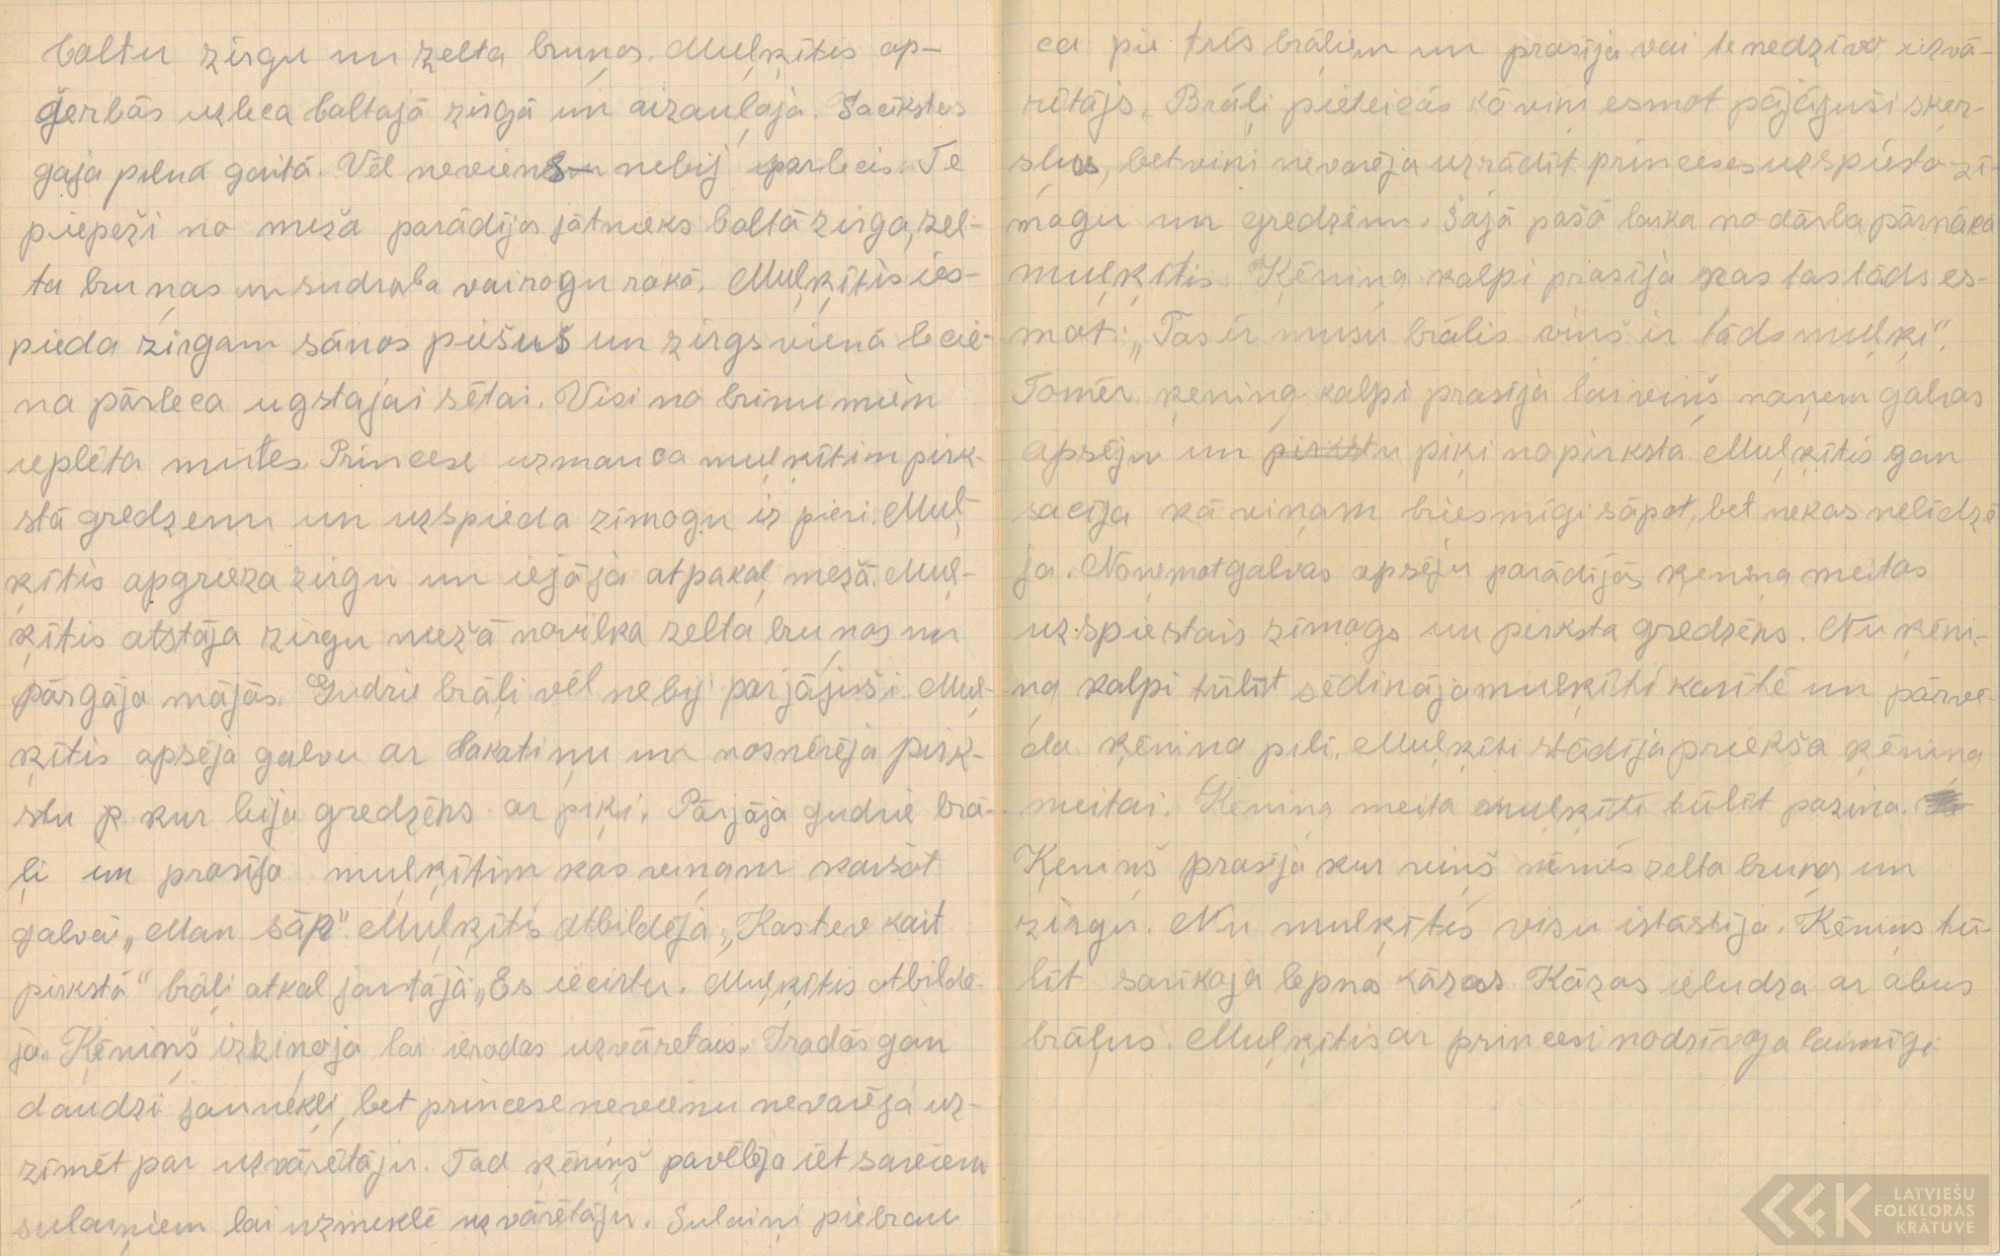 baltu zirgu un zelta bruņas. Muļķītis ap-
ģerbās uzleca baltajā zirgā un aizauļoja. Sacīkstes
gāja pilnā gaitā. Vēl neviens nebij pārlecis. Te
piepeži no meža parādījās jātnieks baltā zirgā, zel-
ta bruņas un sudraba vairogu rokā. Muļķītis ies-
pieda zirgam sānos piešus un zirgs vienā lecie-
na pārleca ugstajai sētai. Visi no brīnumiem
ieplēta mutes. Princese uzmauca muļķītim pirk-
stā gredzenu un uzspieda zīmogu iz pieri. Muļ-
ķītis apgrieza zirgu un iejāja atpakaļ mežā. Muļ-
ķītis atstāja zirgu mežā novilka zelta bruņas un
pārgāja mājās. Gudrie brāļi vēl nebij pārjājuši. Muļ-
ķītis apsēja galvu ar lakatiņu un nosmērēja pirk-
stu p kur bija gredzēns ar piķi. Pārjāja gudrie brā-
ļi un prasīja muļķītim kas viņam kaišot
galvai „Man sāp" Muļķītis atbildēja „Kas tev kait
pirkstā" brāļi atkal jautājā „Es iecirtu. Muļķītis atbildē-
ja. Ķēniņš izziņoja lai ierodas uzvarētais. Iradās gan
daudzi jaunekļi, bet princese nevienu nevarēja uz-
zīmēt par uzvārētāju. Tad ķēniņš pavēlēja iet saviem
sulaiņiem lai uzmeklē uzvārētāju. Sulaiņi piebrau
ca pie trīs brāļiem un prasīja vai te nedzīvo uzvā-
rētājs. Brāļi pieteicās kā viņi esmot pājājuši šķēr-
sļus, bet viņi nevarēja uzrādīt princeses uzspiesto zī-
mogu un gredzēnu. Šajā pašā laika no dārba pārnāka
muļķītis. Ķēniņa kalpi prasīja kas tas tāds es-
mot: „Tas ir musu brālis viņš ir tāds muļķi".
Tomēr ķēniņa kalpi prasīja lai viņš noņem galvas
apsēju un pirkstu piķi no pirksta Muļķītis gan
sacīja kā viņam briesmīgi sāpot, bet nekas nelīdzē
ja. Noņemot galvas apsēju parādijās ķeniņa meitas
uzspiestais zīmogs un pirksta gredzēns. Nu ķēni-
ņa kalpi tūlīt sēdināja muļķīti karītē un pārve-
da ķēniņa pilī. Muļķīti stādīja priekša ķēniņa
meitai. Ķēniņa meita muļķīti tūlīt pazina.
Ķeniņš prasīja kur viņš ņēmis zelta bruņas un
zirgu. Nu muļķītis visu istāstīja. Kēniņs tū-
līt sarīkoja lepnas kāzas. Kāzas ieludza ar abus
brāļus. Muļķītis ar princesi nodzīvoja laimīgi
LATVIEŠU
FOLKLORAS
KRĀTUVE